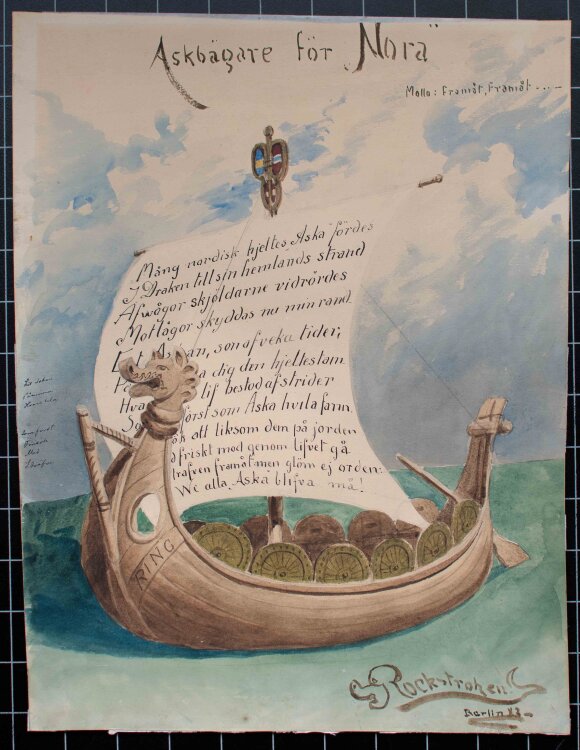 Askbägare för "Nora"
Motto: Framåt, Framåt....
Mång nordisk hjeltes "Aska" fördes
I Draken till sin hemlands strand
Af vågor sköldarne vidrördes
Mot lågor skyddas nu min rand.
son af veka tider,
a dig den hjeltestam
Hva lif bestod af strider
först som Aska hvila fann.
ök att liksom dem på jorden
friskt mod genom lifvet gå
framåt men glöm ej orden:
We alla "Aska" blifva må!
RING
Rockstrohen
Berlin